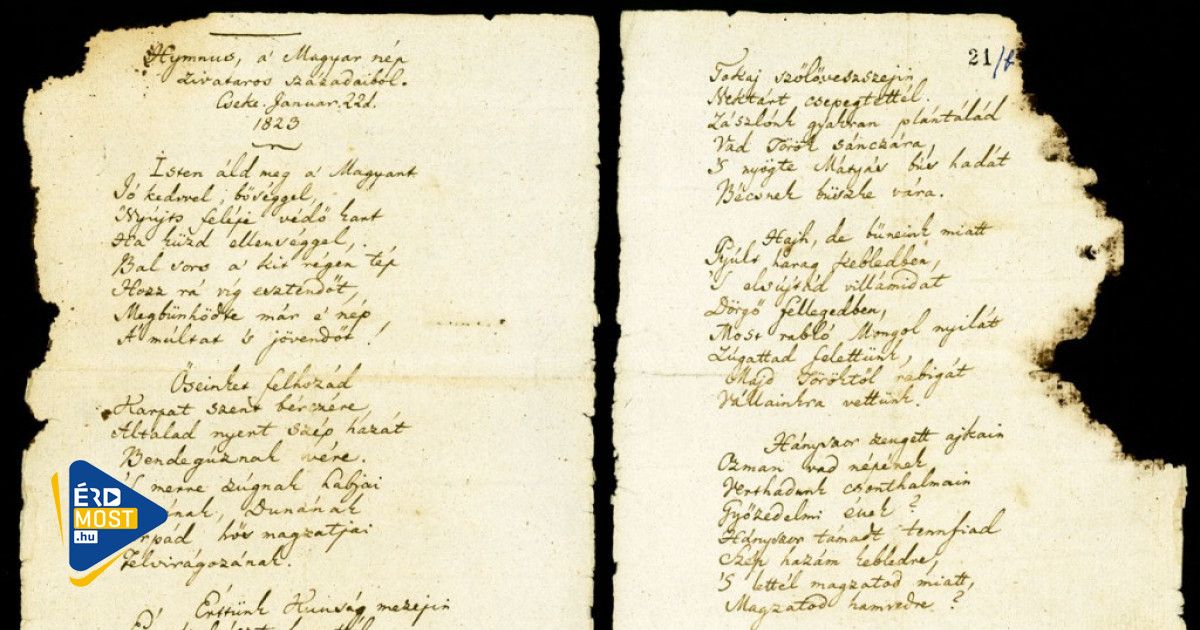 Hymnus, a' Magyar nép
zivataros századaiból.
Cseke. Januar. 22d.
1823
Isten áld meg a' Magyart
Jó kedvvel, bőséggel,
Nyújts feléje védő kart
Ha küzd ellenséggel,
Bal sors a' kit régen tép
Hozz rá víg esztendőt,
Megbünhödte már e' nép
A' múltat 's jövendőt!
Őseinket felhozád
Karpat szent bérczére,
Általad nyert szép hazát
Bendeguznak vére.
'S merre zúgnak habjai
Dunának
hős magzatjai
Felvirágozának.
Érttünk Kunság mezejin
ÉRD
MOST
.hu
21/b
Tokaj szőlőveszszejin
Nektárt csepegtettél.
Zászlónk gyakran plántálád
Vad Török sánczára,
'S nyögte Mátyás bús hadát
Bécsnek büszke vára.
Hajh, de bűneink miatt
Gyúlt harag kebledben,
'S elsújtád villámidat
Dörgő fellegedben,
Most rabló Mongol nyilát
Zúgattad felettünk,
Majd Töröktől rabigát
Vállainkra vettünk.
Hányszor zengett ajkain
Ozman vad népének
Verthadunk csonthalmain
Győzedelmi ének?
Hányszor támadt tennfiad
Szép hazám kebledre,
'S lettél magzatod miatt,
Magzatod hamvedre?